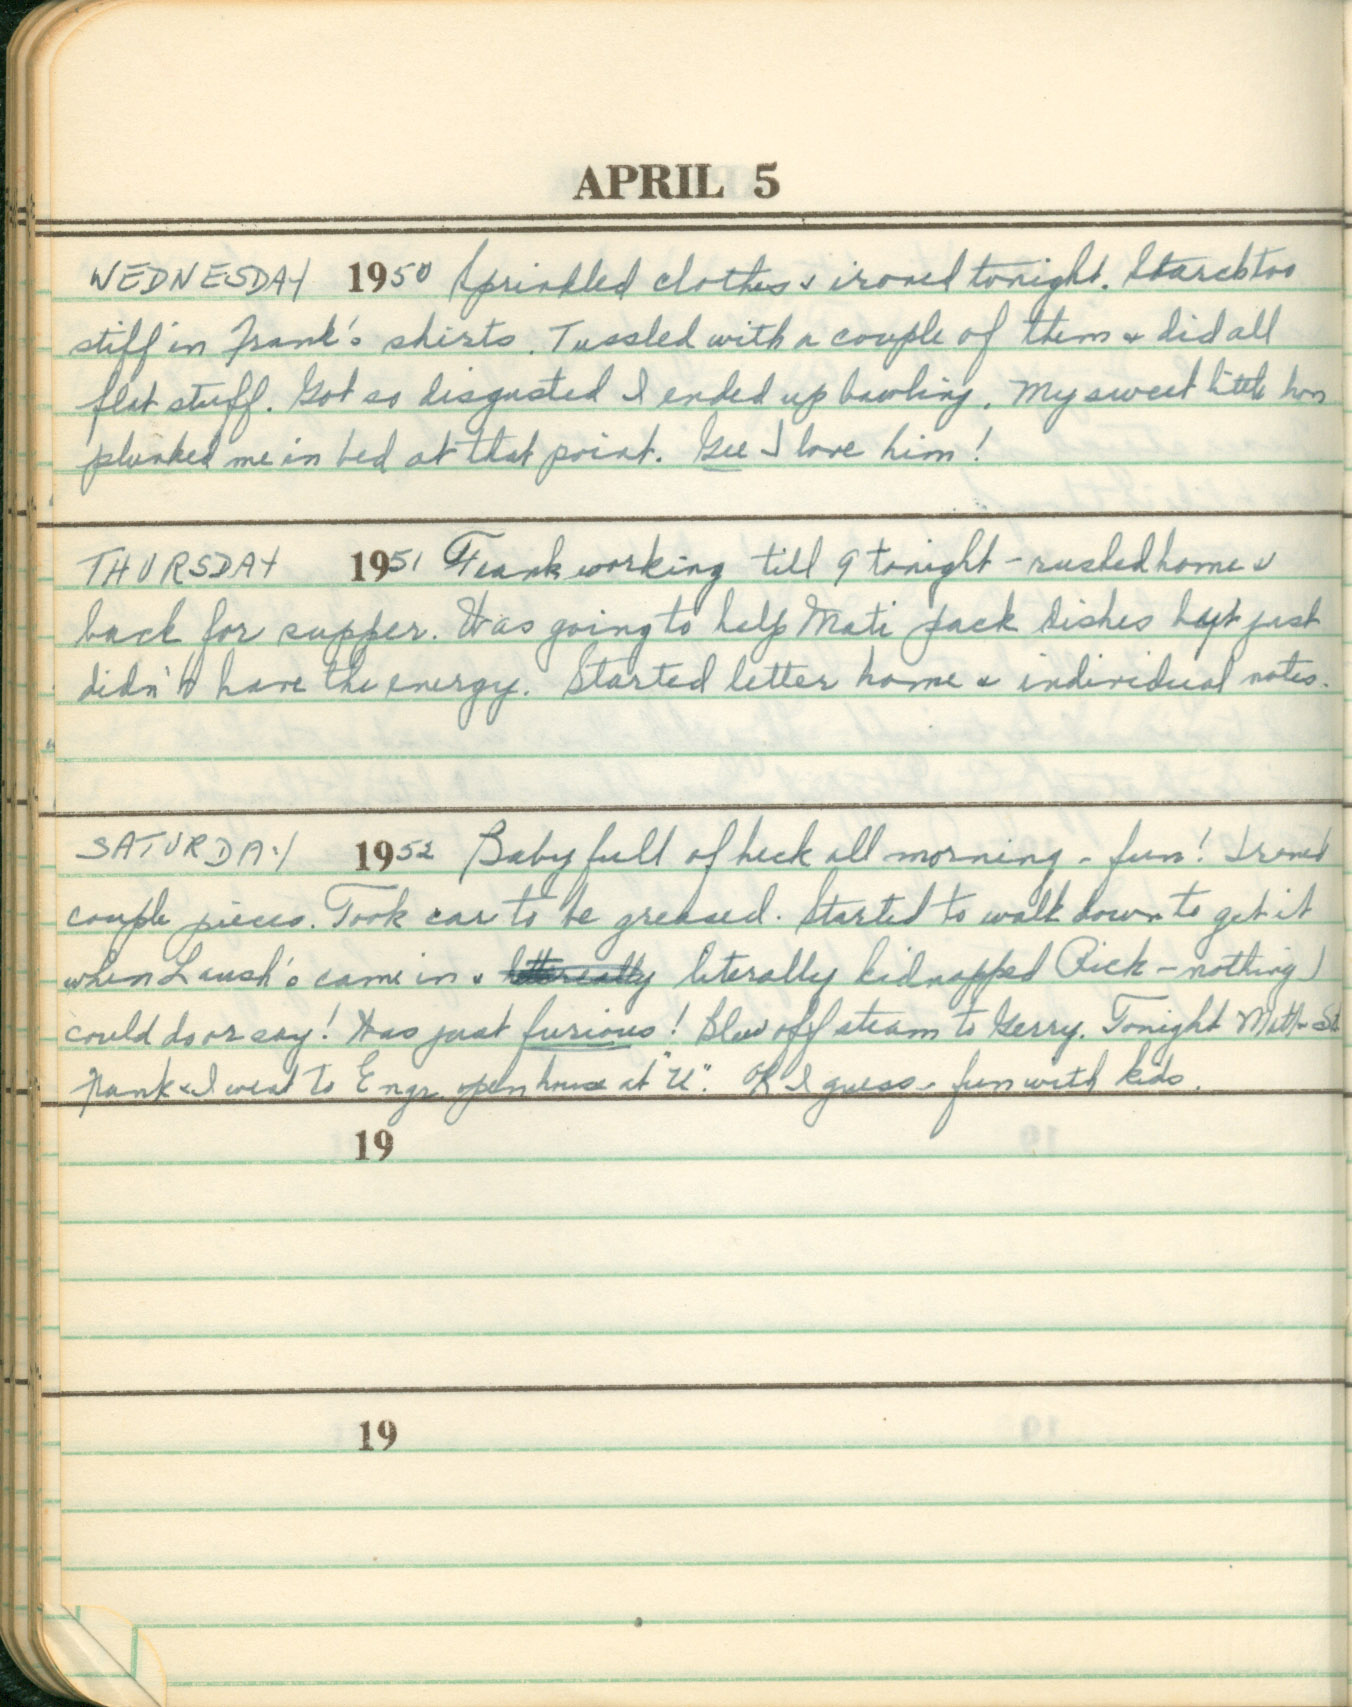 APRIL 5
WEDNESDAY 1950 Sprinkled clothes & ironed tonight. Starch too
stiff in Frank's shirts. Tussled with a couple of them & did all
flat stuff. Got so disgusted I ended up bawling. My sweet little hon
plunked me in bed at that point. Gee I love him!
THURSDAY 1951 Frank working till 9 tonight - rushed home &
back for supper. Was going to help Mati pack dishes but just
didn't have the energy. Started letter home & individual notes.
SATURDAY 1952 Baby full of heck all morning - fun! Ironed
couple pieces. Took car to be greased. Started to walk down to get it
when Laush's came in & literally kidnapped Rick - nothing I
could do or say! Was just furious! Blew off steam to Gerry. Tonight
Frank & I went to Engr. open house at "U". OK I guess - fun with kids.
19
19